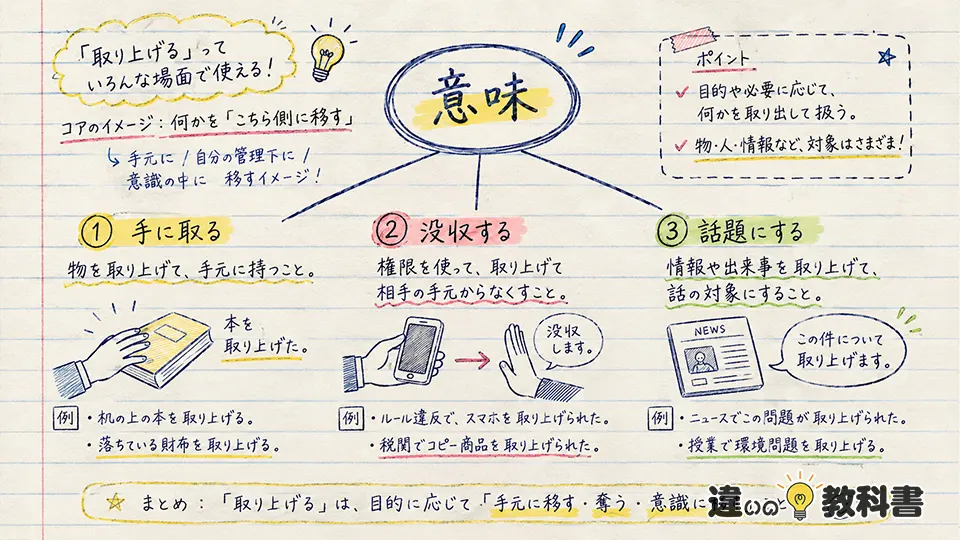 「取り上げる」って
いろんな場面で使える！
コアのイメージ：何かを「こちら側に移す」
手元に / 自分の管理下に /
意識の中に 移すイメージ！
意味
ポイント
✓ 目的や必要に応じて、
何かを取り出して扱う。
✓ 物・人・情報など、対象はさまざま！
① 手に取る
物を取り上げて、手元に持つこと。
本を
取り上げた。
例
・机の上の本を取り上げる。
・落ちている財布を取り上げる。
② 没収する
権限を使って、取り上げて
相手の手元からなくすこと。
没収
します。
例
・ルール違反で、スマホを取り上げられた。
・税関でコピー商品を取り上げられた。
③ 話題にする
情報や出来事を取り上げて、
話の対象にすること。
NEWS
この件について
取り上げます。
例
・ニュースでこの問題が取り上げられた。
・授業で環境問題を取り上げる。
まとめ：「取り上げる」は、目的に応じて「手元に移す・奪う・意識に
違いの教科書